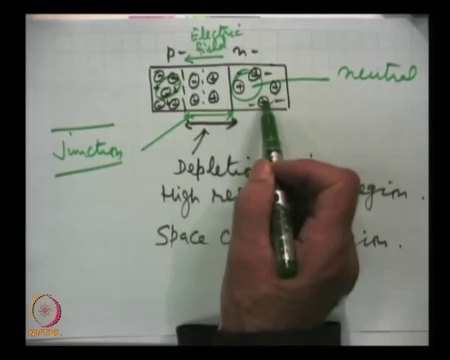 Electric
field
p- n-
neutral
Junction
Depletion
High region.
Space
NPTEL